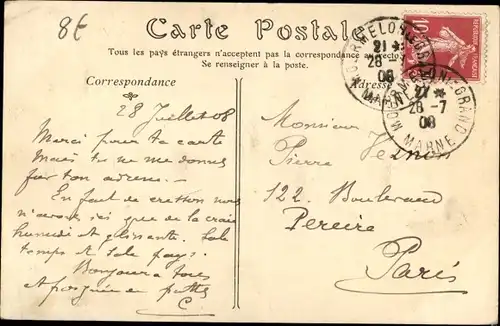 8€
Carte Postale
Tous les pays étrangers n'acceptent pas la correspondance au recto
Se renseigner à la poste.
Correspondance
Adresse
MOURMELON-LE-GRAND
21
28-7
08
MARNE
MOURMELON-LE-GRAND
21
28-7
08
MARNE
10
28 Juillet 08
Merci pour ta carte
Mais tu ne me donnes
pas ton adresse —
En fait de nous
n'avons ici que de la craie
humide et glissante. Sale
temps et sale pays.
Bonjour à tous
et
C.
Monsieur
Pierre Vernon
122. Boulevard
Pereire
Paris